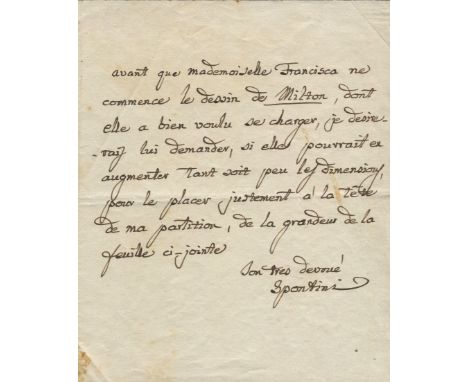 avant que mademoiselle Francisca ne
commence le dessin de Milton, dont
elle a bien voulu se charger, je desire-
-rais lui demander, si elle pourrait en
augmenter tant soit peu les dimensions,
pour le placer justement à la tête
de ma partition, de la grandeur de la
feuille ci-jointe
Son tres devoué
Spontini